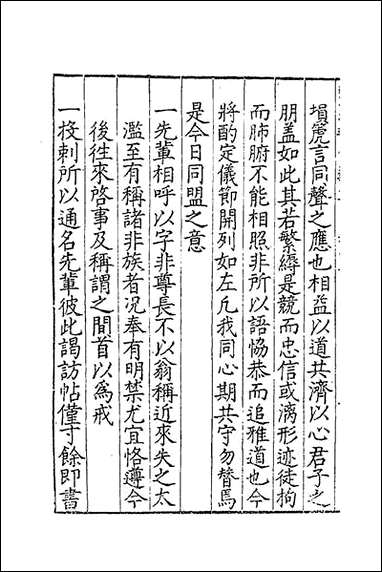 塤箎言同聲之應也相益以道共濟以心君子之
朋盖如此其若繁縟是競而忠信或漓形迹徒拘
而肺腑不能相照非所以語恊恭而追雅道也今
將酌定儀節開列如左凢我同心期共守勿替焉
是今日同盟之意
一先輩相呼以字非尊長不以翁稱近來失之太
濫至有稱諸非族者况奉有明禁尤宜恪遵今
後徃來啓事及稱謂之間首以爲戒
一投刺所以通名先輩彼此謁訪帖僅寸餘即書